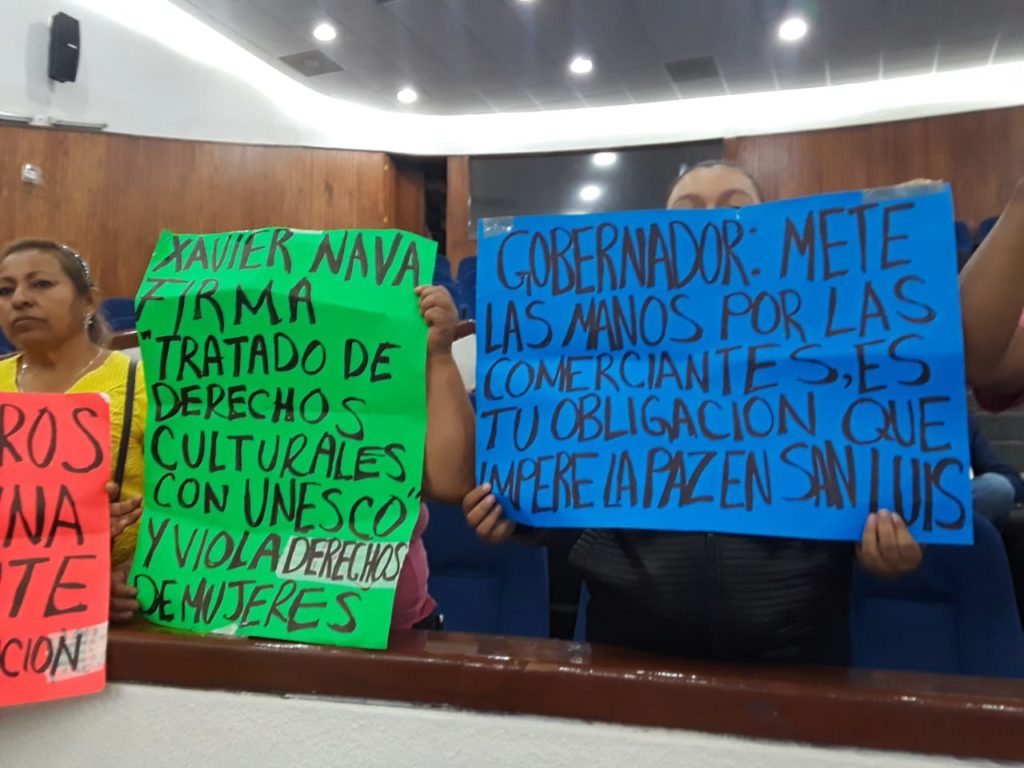 ROS
NA
TE
CION
XAVIER NAVA
FIRMA
"TRATADO DE
DERECHOS
CULTURALES
CON UNESCO"
Y VIOLA DERECHOS
DE MUJERES
GOBERNADOR: METE
LAS MANOS POR LAS
COMERCIANTES, ES
TU OBLIGACION QUE
IMPERE LA PAZ EN SAN LUIS